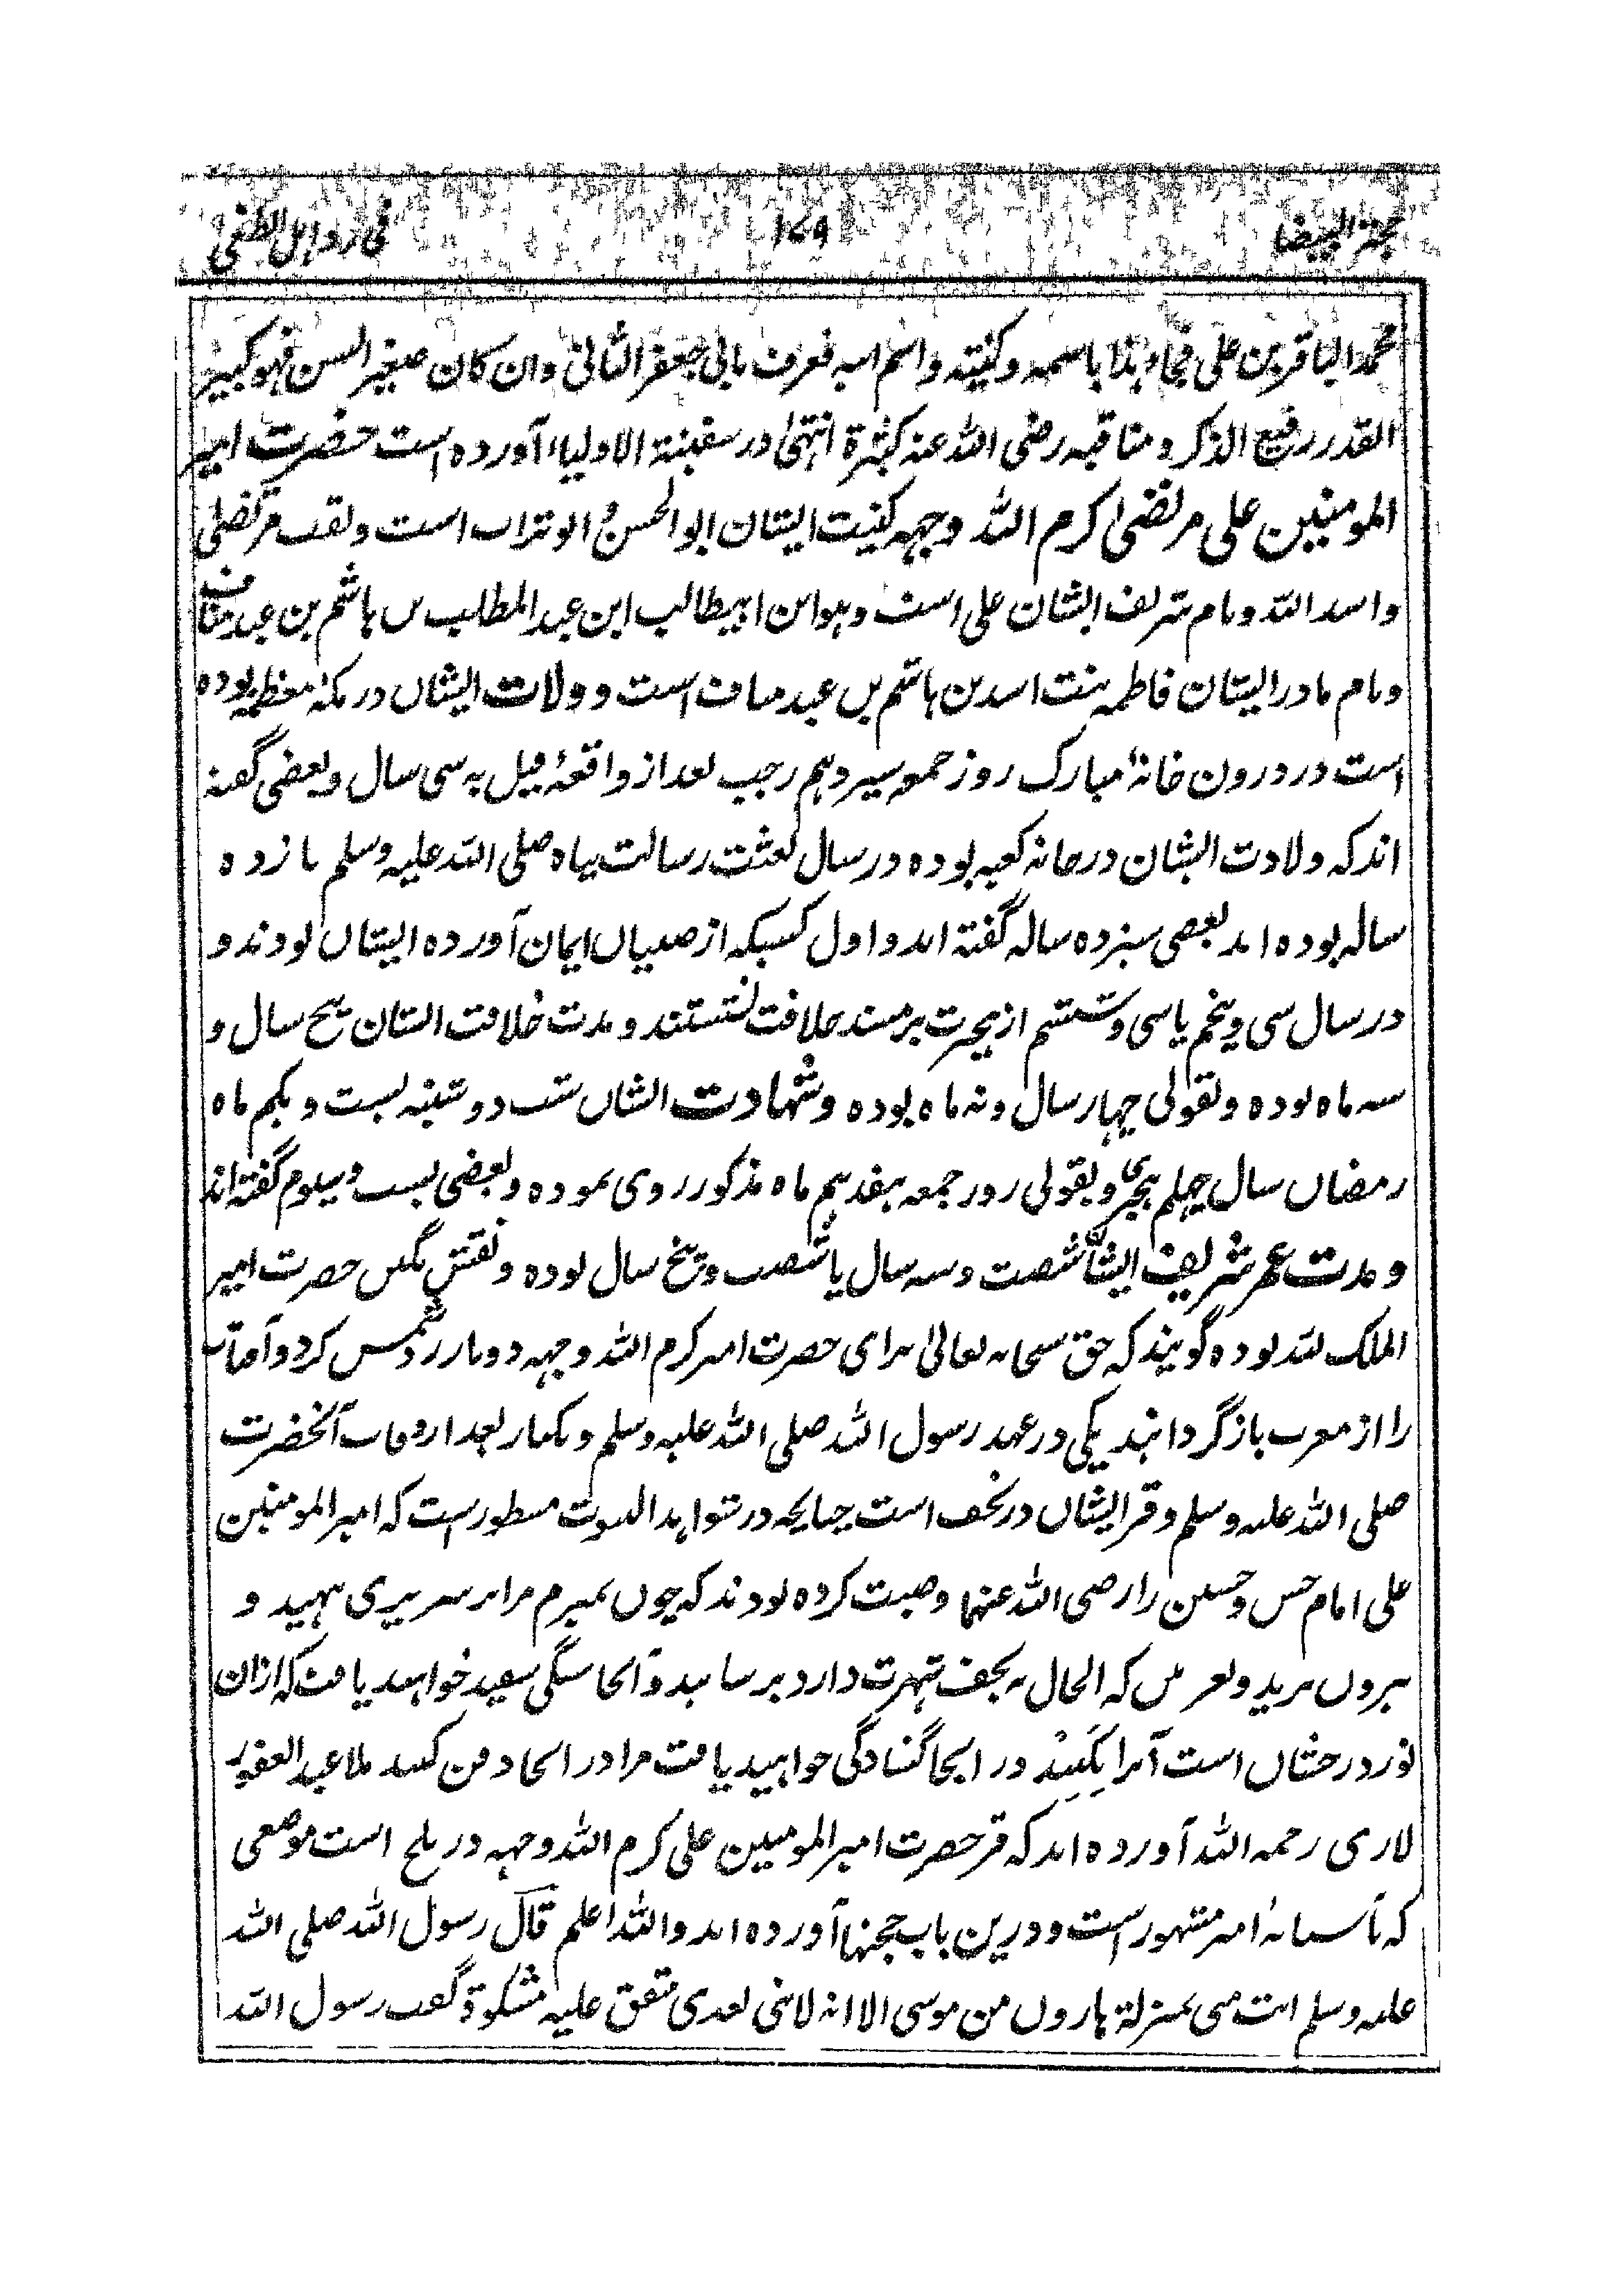 حجة البیضا ۱۷۹ فی رد اہل الطغی
محمد الباقر بن علی فجاء ہذا باسمہ و کنیتہ و اسم ابیہ فعرف بابی جعفر الثانی و ان کان صغیر السن فہو کبیر
القدر رفیع الذکر و مناقبہ رضی اللہ عنہ کثیرة انتہیٰ در سفینۃ الاولیاء آوردہ است حضرت امیر
المومنین علی مرتضیٰ کرم اللہ وجہہ کنیت ایشان ابو الحسن و ابو تراب است و لقب مرتضیٰ
و اسد اللہ و نام شریف ایشان علی است و ہو ابن ابیطالب ابن عبد المطلب بن ہاشم بن عبد مناف
و نام مادر ایشان فاطمہ بنت اسد بن ہاشم بن عبد مناف است و ولات ایشاں در مکہٴ معظمہ بودہ
است در درون خانہٴ مبارک روز جمعہ سیزدہم رجب بعد از واقعۂ فیل بہ سی سال و بعضی گفتہ
اند کہ ولادت ایشان در خانہ کعبہ بودہ در سال بعثت رسالت پناہ صلی اللہ علیہ وسلم پانزدہ
سالہ بودہ اند بعضی سیزدہ سالہ گفتہ اند و اول کسیکہ از صبیاں ایمان آوردہ ایشاں بودند و
در سال سی و پنجم یا سی و ششم از ہجرت بر مسند خلافت نشستند و مدت خلافت ایشان پنج سال و
سہ ماہ بودہ و بقولی چہار سال و نہ ماہ بودہ و شہادت ایشاں شب دوشنبہ بست و یکم ماہ
رمضاں سال چہلم ہجری و بقولی روز جمعہ ہفدہم ماہ مذکور روی نمودہ و بعضی بست و سیوم گفتہ اند
و مدت عمر شریف ایشاں شصت و سہ سال یا شصت و پنج سال بودہ و نقش نگیں حضرت امیر
الملک للہ بودہ گویند کہ حق سبحانہ تعالیٰ برای حضرت امیر کرم اللہ وجہہ دو بار رد شمس کرد و آفتاب
را از مغرب باز گردانید یکی در عہد رسول اللہ صلی اللہ علیہ وسلم و یکبار بعد از وفات آنحضرت
صلی اللہ علیہ وسلم و قبر ایشاں در نجف است چنانچہ در شواہد النبوت مسطور است کہ امیر المومنین
علی امام حسن و حسین را رضی اللہ عنہما وصیت کردہ بودند کہ چوں بمیرم مرا بر سریری نہید و
بیروں برید و بغر یں کہ الحال بہ نجف شہرت دارد برسانید و آنجا سنگی سفید خواہید یافت کہ ازان
نور درخشاں است آنرا بکنید در اینجا گشادگی خواہید یافت مرا در انجا دفن کنید ملا عبد الغفور
لاری رحمہ اللہ آوردہ اند کہ قبر حضرت امیر المومنین علی کرم اللہ وجہہ در بلخ است موضعی
کہ بآستانہٴ امیر مشہور است و درین باب حجتہا آوردہ اند و اللہ اعلم قال رسول اللہ صلی اللہ
علیہ وسلم انت منی بمنزلۃ ہاروں من موسی الا انہ لا نبی بعدی متفق علیہ مشکوۃ گفت رسول اللہ